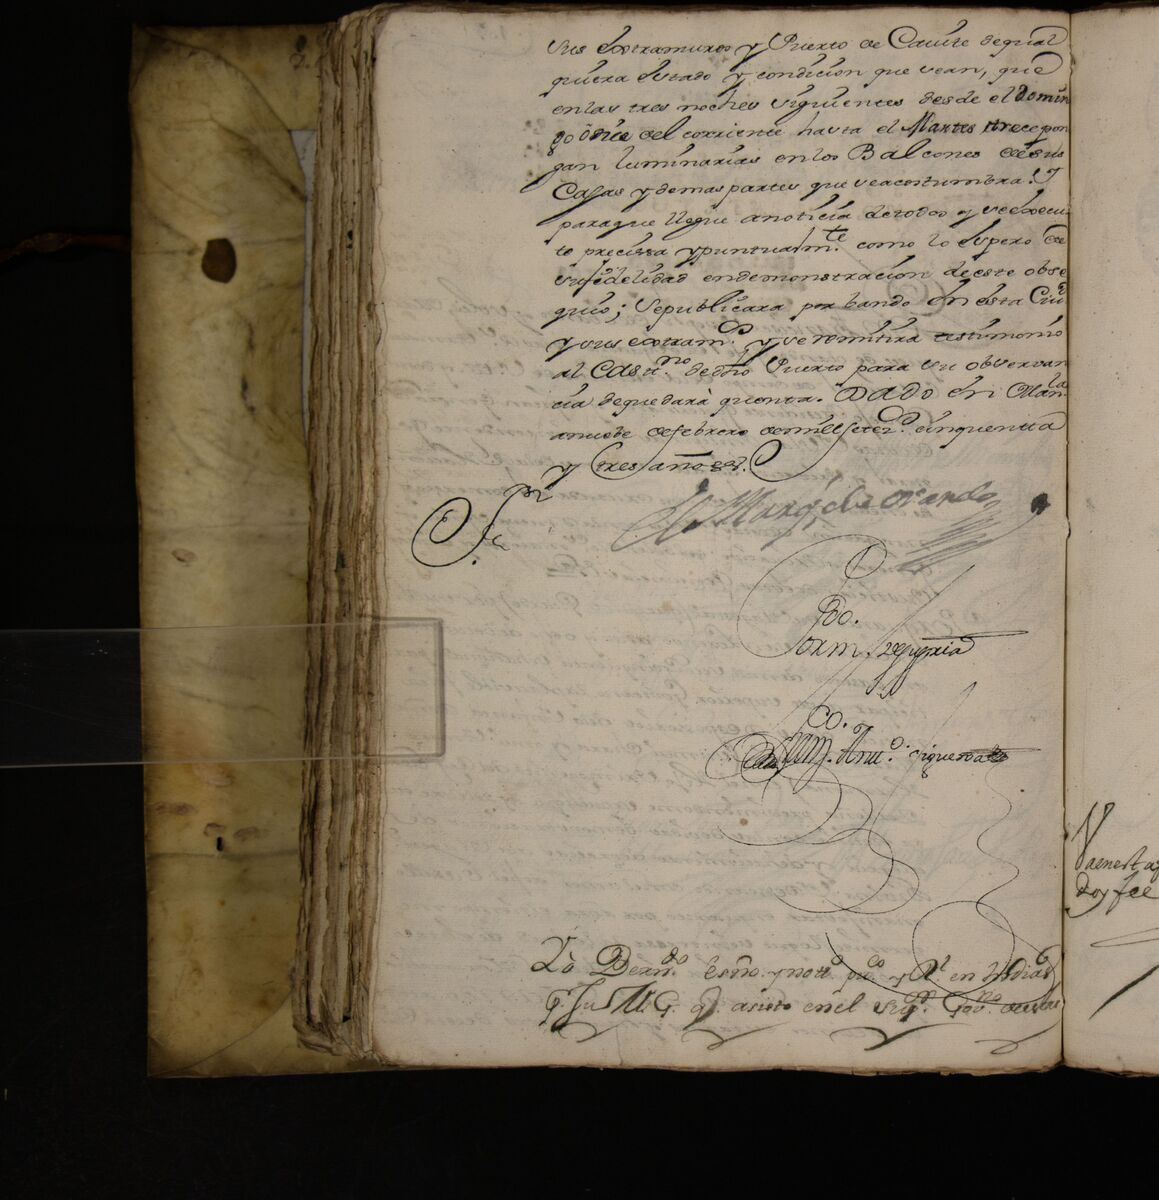 sus Extramuros y Puerto de Cavite de qual
quiera estado y condicion que sean, que
en las tres noches siguientes desde el Domin
go del corriente hasta el Martes trece pon
gan luminarias en los Balcones de sus
Casas y demas partes que se acostumbra. Y
para que llegue a noticia de todos y se execu
te precissa y puntualm.te como lo espero de
su fidelidad en demonstracion de este obse
quio; Se publicara por bando en esta Ciu.d
y sus extram.s y se remitira testimonio
al Cast.no de dho Puerto para su observan
cia de que dará quenta. Dado en Man.la
a nuebe de febrero de mill setez.s cinquenta
y tres años
El Marq.s de Ovando
Antt.o
Yo Bern.do Essno. y nott.o pu.co y R.l en Yndias
p.r Su M. G. q. asisto en el Sup.or Gov.no de estas
Vaenesta
doy fee